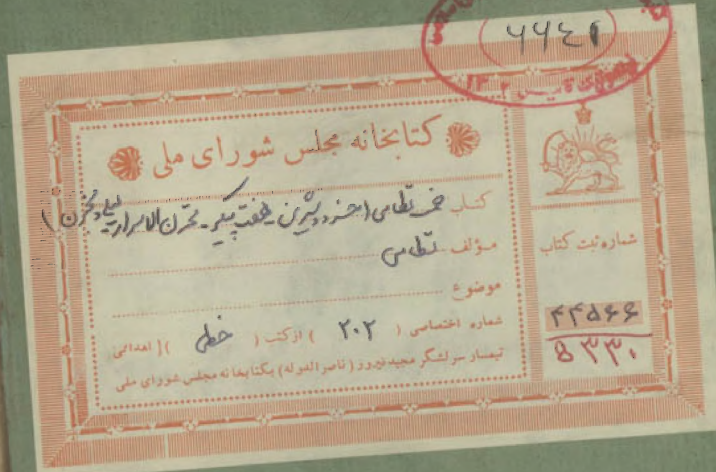 ۶۶۴۱
۱۳۰۲
کتابخانه مجلس شورای ملی
کتاب خمسه نظامی (خسرو و شیرین - هفت پیکر - مخزن الاسرار - لیلی و مجنون)
مؤلف نظامی
موضوع
شماره اختصاصی ( ۲۰۲ ) از کتب ( خطی ) اهدائی
تیمسار سرلشگر مجید فیروز (ناصرالدوله) بکتابخانه مجلس شورای ملی
شماره ثبت کتاب
۴۴۵۶۶
۵۳۳۰